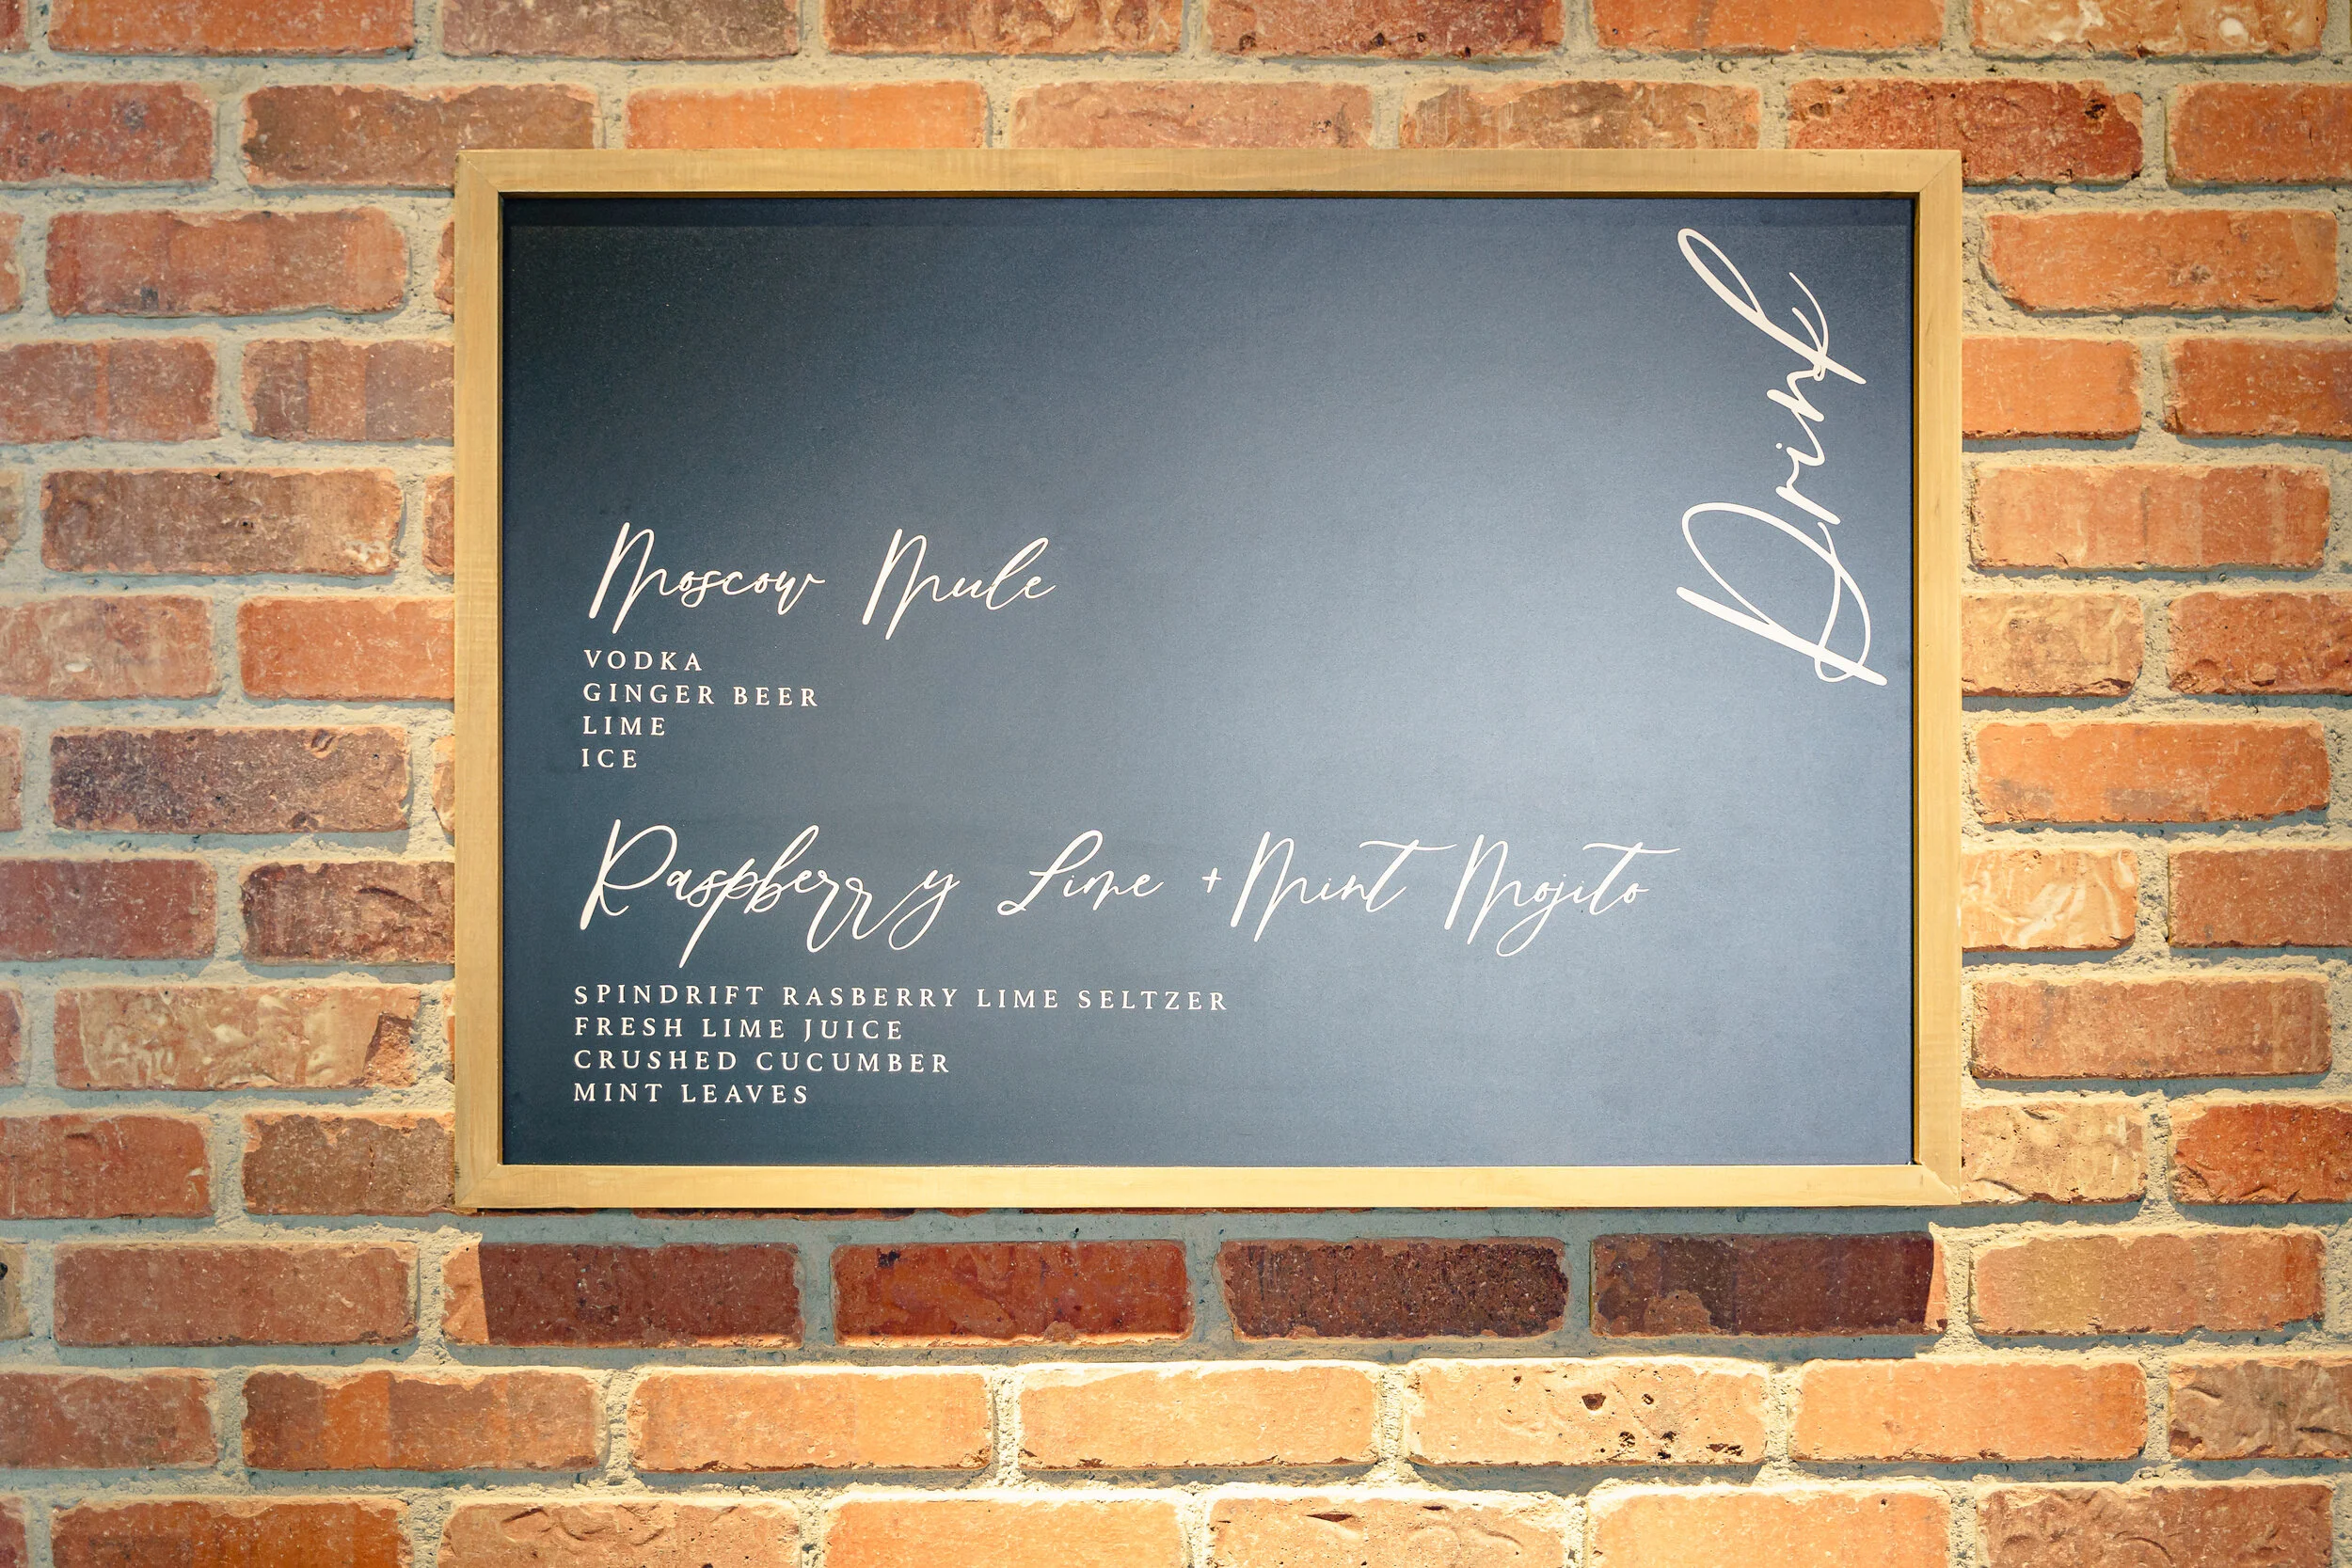 Drink
Moscow Mule
VODKA
GINGER BEER
LIME
ICE
Raspberry Lime + Mint Mojito
SPINDRIFT RASBERRY LIME SELTZER
FRESH LIME JUICE
CRUSHED CUCUMBER
MINT LEAVES